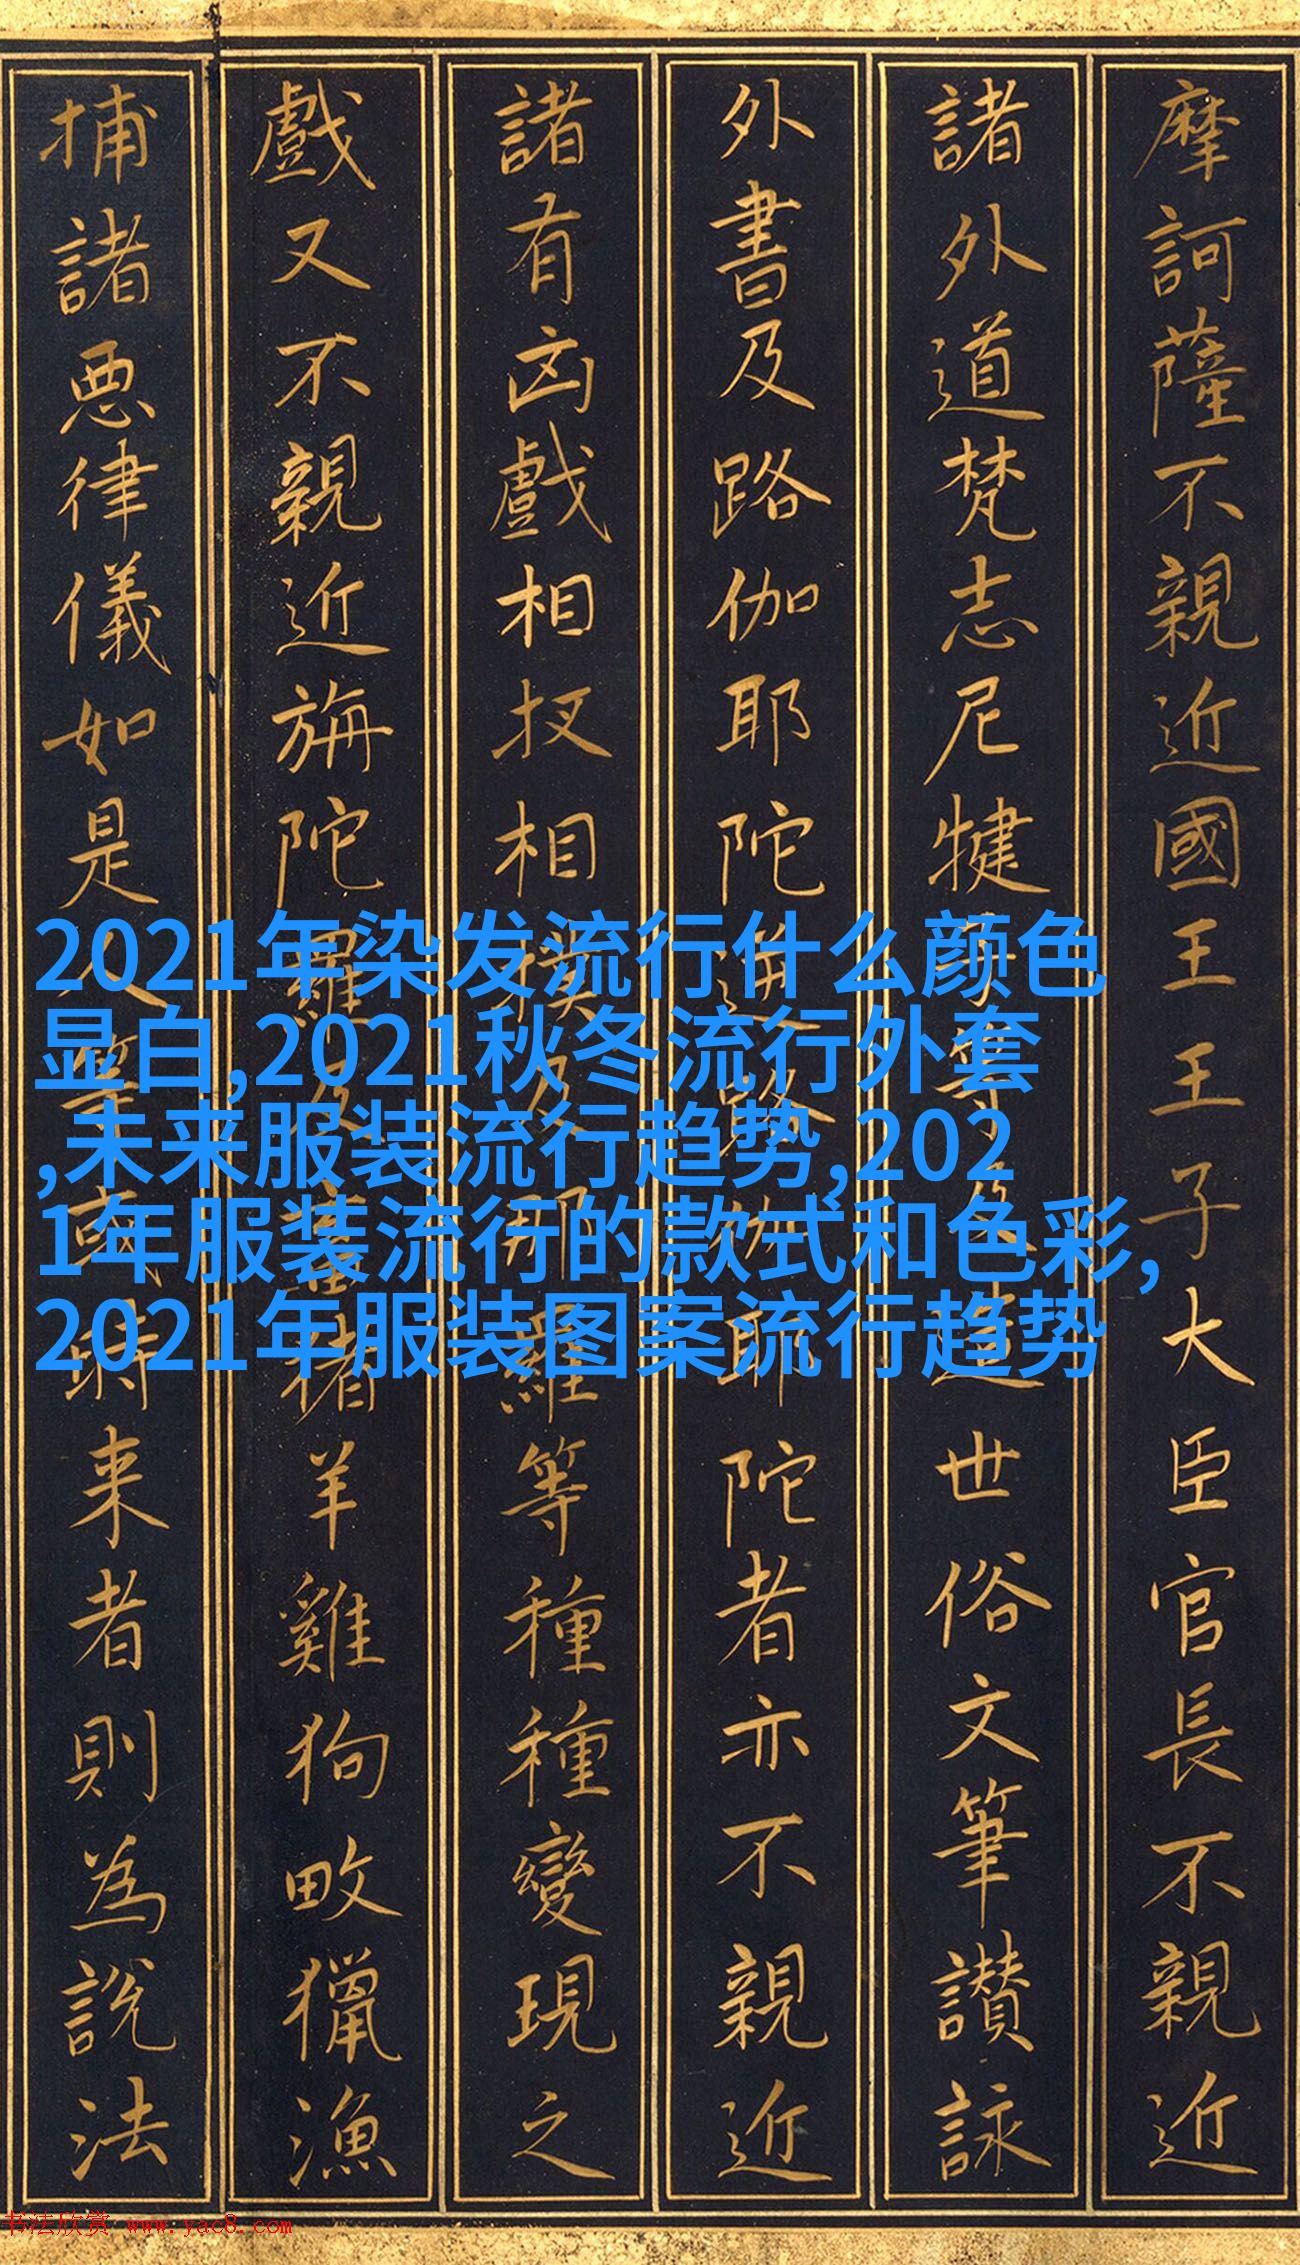 摩訶薩不親近國王王子大臣官長不親近
諸外道梵志尼犍子等及造世俗文筆讃詠
外書及路伽耶陀逆路伽耶陀者亦不親近
諸有凶戲相扠相撲及那羅等種種變現之
戲又不親近旃陀羅及畜猪羊雞狗畋獵漁
捕諸悪律儀如是人等或時来者則為說法
2021年染发流行什么颜色
显白,2021秋冬流行外套
,未来服装流行趋势,202
1年服装流行的款式和色彩,
2021年服装图案流行趋势
书法欣赏 www.yac8.com